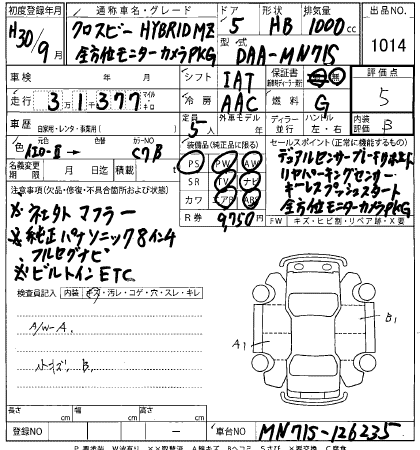 初度登録年月 通称車名・グレード ドア 形状 排気量 出品NO.
H30/9月 クロスビー HYBRID MZ 5 HB 1000cc 1014
全方位モニターカメラPKG 型式 DAA-MN71S
車検 年 月 シフト IAT 保証書 有 無 評価点
走行 3万1千377 マイル キロ 冷房 AAC 燃料 G 5
車歴 自家用・レンタ・事業用( ) 定員 5人 外車モデル 年 ディーラー 並行 ハンドル 左・右 内装評価 B
色 元色 → 色替 カラーNO C7B 装備品(純正品に限る) セールスポイント(正常に機能するもの)
名義変更期限 月 日迄 積載 PS PW AW デュアルセンサーブレーキサポート
注意事項(欠品・修復・不具合箇所および状態) SR TV ナビ リヤパーキングセンサー
※ネクストマフラー カワ エアB ABS キーレスプッシュスタート
※純正パナソニック8インチ R券 9,750円 全方位モニターカメラPKG
フルセグナビ FW キズ・ヒビ割・リペア跡・X要
※ビルトインETC
検査員記入 内装 キズ・汚レ・コゲ・穴・スレ・キレ
A/W-A. A1 B1
内キズ B.
長さ cm 幅 cm 高さ cm
登録NO - 車台NO MN71S-126235